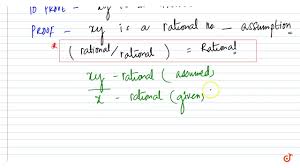 TO PROVE -
PROOF - xy is a rational no - assumption
* (rational/rational) = Rational
xy - rational (assumed)
x - rational (given)